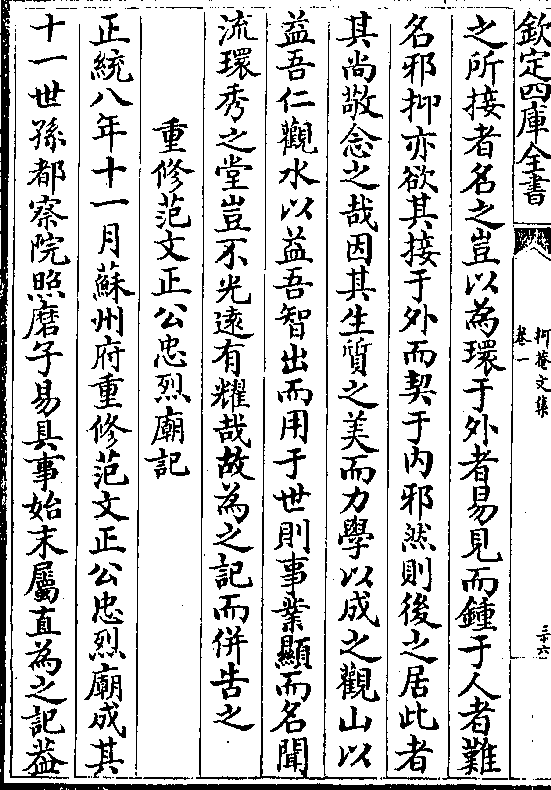 欽定四庫全書
抑菴文集
卷一
三十六
之所接者名之豈以為環于外者易見而鍾于人者難
名邪抑亦欲其接于外而契于内邪然則後之居此者
其尚敬念之哉因其生質之美而力學以成之觀山以
益吾仁觀水以益吾智出而用于世則事業顯而名聞
流環秀之堂豈不光遠有耀哉故為之記而併告之
重修范文正公忠烈廟記
正統八年十一月蘇州府重修范文正公忠烈廟成其
十一世孫都察院照磨子易具事始末屬直為之記葢